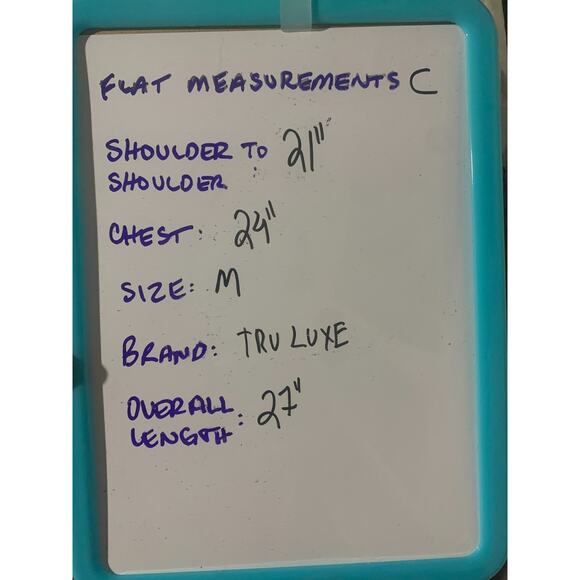 FLAT MEASUREMENTS C
SHOULDER TO 21"
SHOULDER :
CHEST: 24"
SIZE: M
BRAND: TRU LUXE
OVERALL : 27"
LENGTH